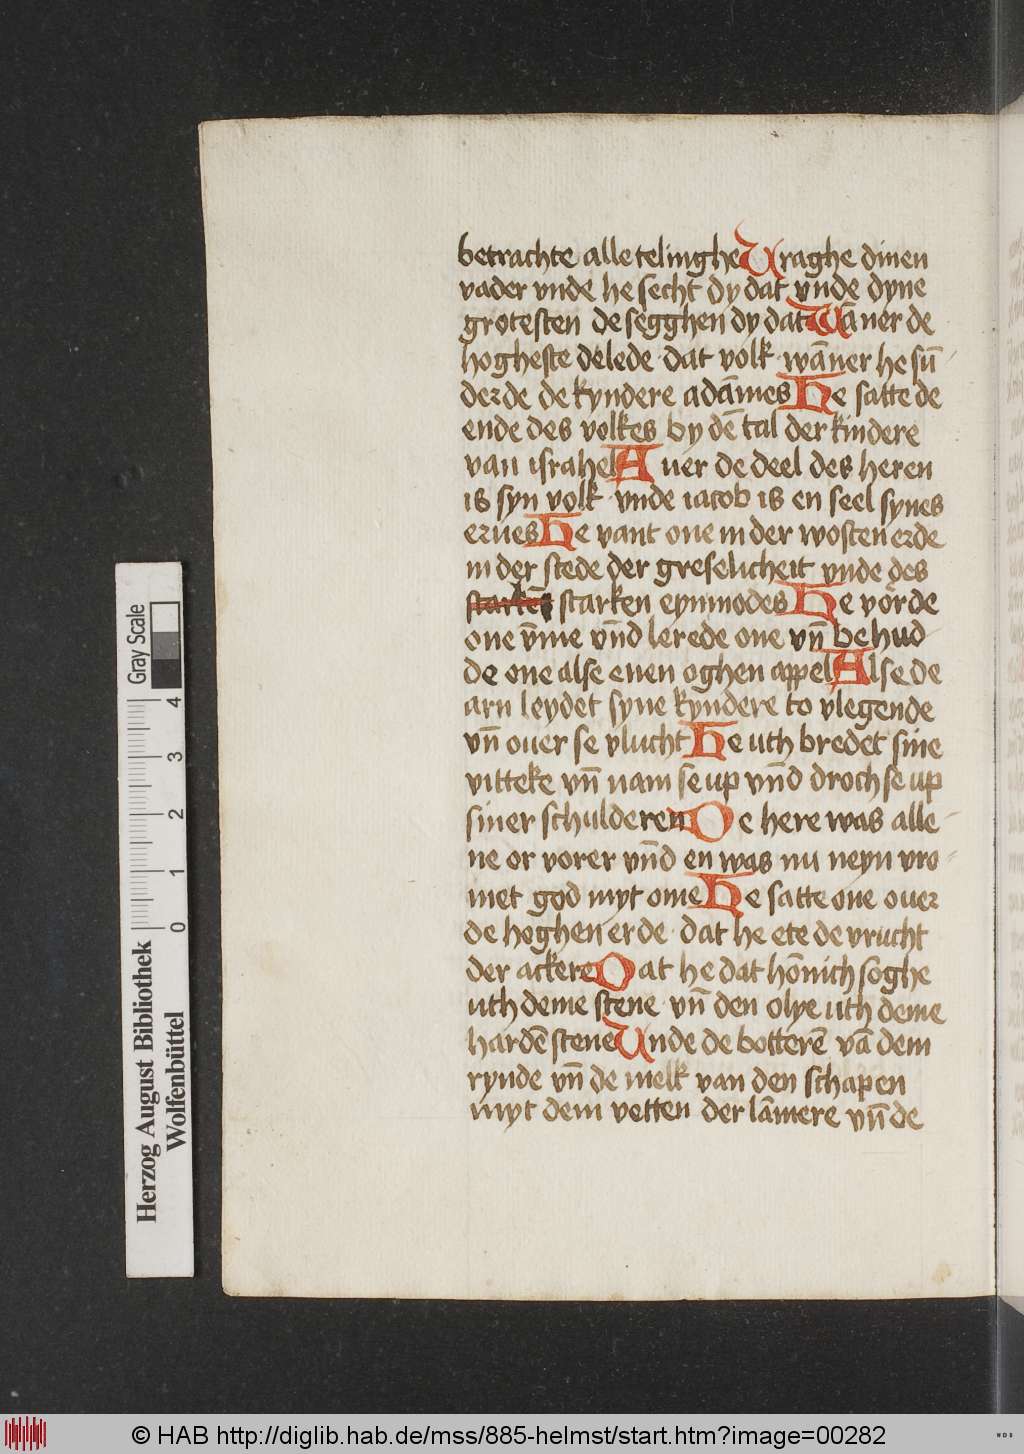 betrachte alle telinghe Vraghe dinen
vader vnde he secht dy dat vnde dyne
grotesten de segghen dy dat Wā ner de
hogheste delede · dat volk · wāner he sū̄
derde de kyndere adāmes He satte de
ende des volkes by dē tal der kindere
van israhel Auer de deel des heren
is syn volk · vnde iacob is en seel synes
erues He vant one in der wosten erde
in der stede der greselicheit vnde des
starkēs starken eynmodes He vo̊rde
one v̄me vn̄d lerede one vn̄ behud
de one alse enen oghen appel Alse de
arn leydet syne kyndere to vlegende
vn̄ ouer se vlucht He uth bredet sine
vitteke vn̄ nam se up vn̄d droch se up
siner schulderen De here was alle-
ne or vorer vn̄d en was nu neyn vro
met god myt ome He satte one ouer
de hoghen erde · dat he ete de vrucht
der ackere Dat he dat hōnich soghe
uth deme stene · vn̄ den olye uth deme
hardē stene Vnde de botterē vā dem
rynde vn̄ de melk van den schapen
myt dem vetten der lāmere vn̄ de
Gray Scale
4 3 2 1 0
Herzog August Bibliothek
Wolfenbüttel
© HAB http://diglib.hab.de/mss/885-helmst/start.htm?image=00282
WDB